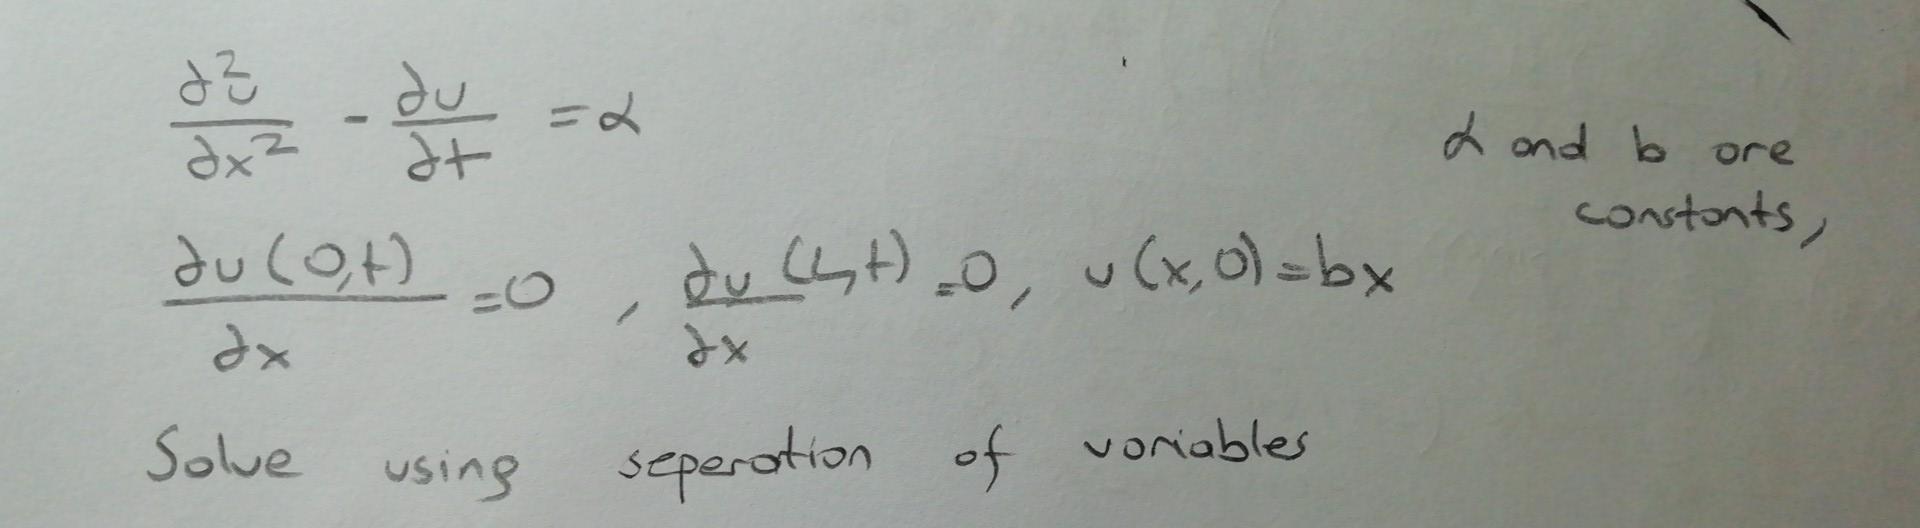 ∂²u/∂x² - ∂u/∂t = α
α and b are
constants,
∂u(0,t)/∂x = 0, ∂u(L,t)/∂x = 0, u(x,0) = bx
Solve using seperation of variables